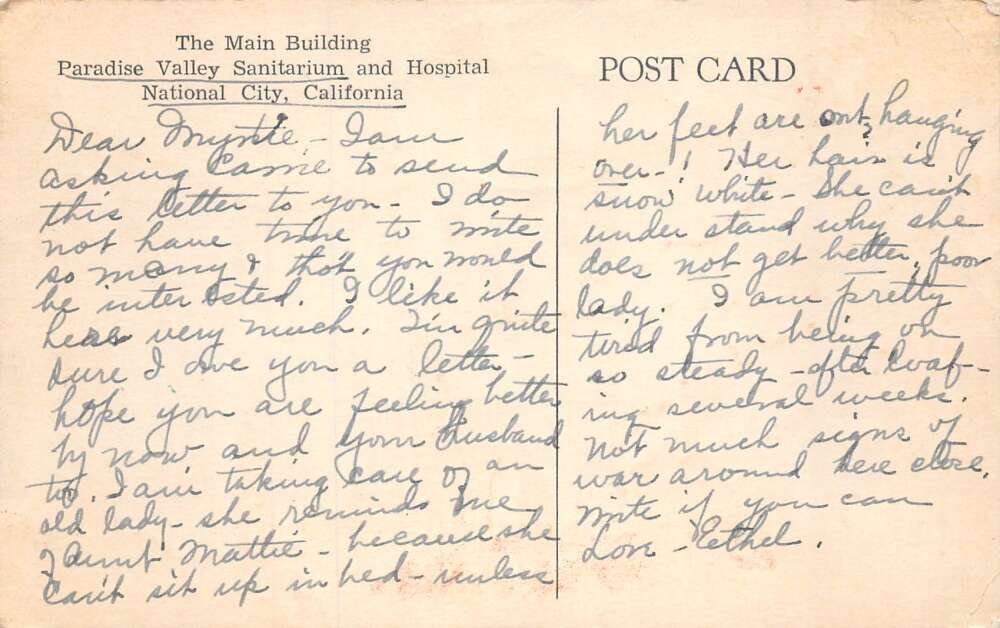 The Main Building
Paradise Valley Sanitarium and Hospital
National City, California
POST CARD
Dear Myrtle - I am
asking Carrie to send
this letter to you - I do
not have time to write
so many & that you would
be interested. I like it
here very much. I'm quite
sure I owe you a letter -
hope you are feeling better
by now and your husband
too. I am taking care of an
old lady - she reminds me
of Aunt Mattie - because she
can't sit up in bed - unless
her feet are out, hanging
over - ! Her hair is
snow white - She can't
under stand why she
does not get better, poor
lady. I am pretty
tired from being on
so steady - after loaf-
ing several weeks.
Not much signs of
war around here close.
Write if you can
Love - Ethel.